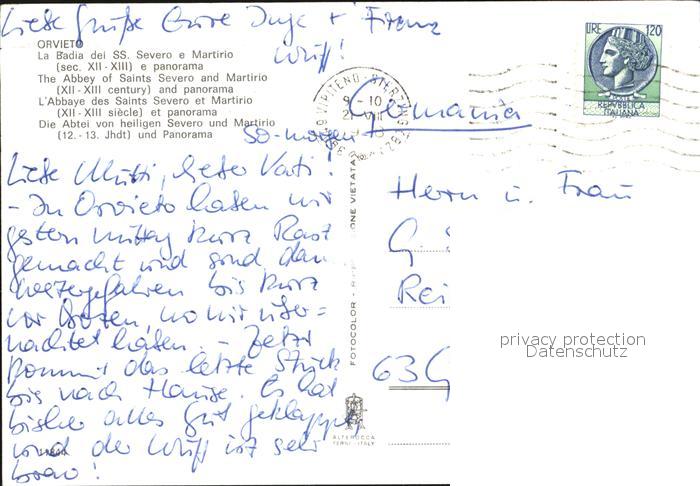 Liebe Grüße Eure Inge + Franz
Wuff!
ORVIETO
La Badia dei SS. Severo e Martirio
(sec. XII - XIII) e panorama
The Abbey of Saints Severo and Martirio
(XII - XIII century) and panorama
L'Abbaye des Saints Severo et Martirio
(XII - XIII siècle) et panorama
Die Abtei von heiligen Severo und Martirio
(12. - 13. Jhdt) und Panorama
LIRE 120
REPVBBLICA
ITALIANA
VIPITENO - STERZING
9 - 10
Germania
So-morgen
Liebe Mutti, lieber Vati!
- In Orvieto haben wir
gestern mittag kurz Rast
gemacht und sind dann
weitergefahren bis kurz
vor Bozen, wo wir über=
nachtet haben. - Jetzt
kommt das letzte Stück
bis nach Hause. Es hat
bisher alles gut geklappt
und der Wuff ist sehr
brav!
Herrn u. Frau
G.
Rei
63
IONE VIETATA
FOTOCOLOR
ALTEROCCA
TERNI - ITALY
privacy protection
Datenschutz